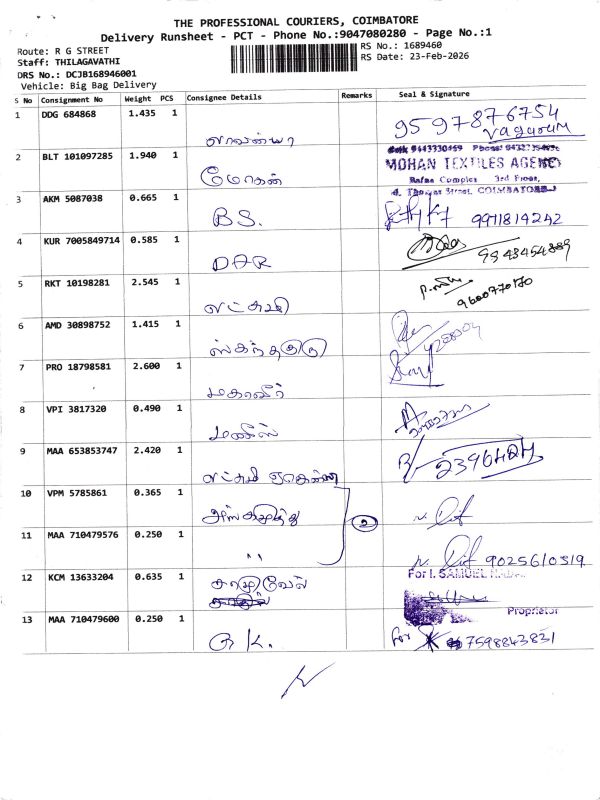 THE PROFESSIONAL COURIERS, COIMBATORE
Delivery Runsheet - PCT - Phone No.:9047080280 - Page No.:1
Route: R G STREET
Staff: THILAGAVATHI
DRS No.: DCJB168946001
Vehicle: Big Bag Delivery
RS No.: 1689460
RS Date: 23-Feb-2026
S No Consignment No Weight PCS Consignee Details Remarks Seal & Signature
1 DDG 684868 1.435 1 9597876754
லாவன்யா
2 BLT 101097285 1.940 1
மோகன் MOHAN TEXTILES AGENCY
3rd Floor,
3 AKM 5087038 0.665 1 COIMBATORE
B.S. 9971814242
4 KUR 7005849714 0.585 1
DAR
5 RKT 10198281 2.545 1
லட்சுமி 9600770170
6 AMD 30898752 1.415 1
ஸ்கந்தகுரு
7 PRO 18798581 2.600 1
மகாவீர்
8 VPI 3817320 0.490 1
மணிஸ்
9 MAA 653853747 2.420 1
லட்சுமி
10 VPM 5785861 0.365 1
2
11 MAA 710479576 0.250 1
" 9025610319
12 KCM 13633204 0.635 1 For I. SAMUEL
Proprietor
13 MAA 710479600 0.250 1
R K. for 7598843831